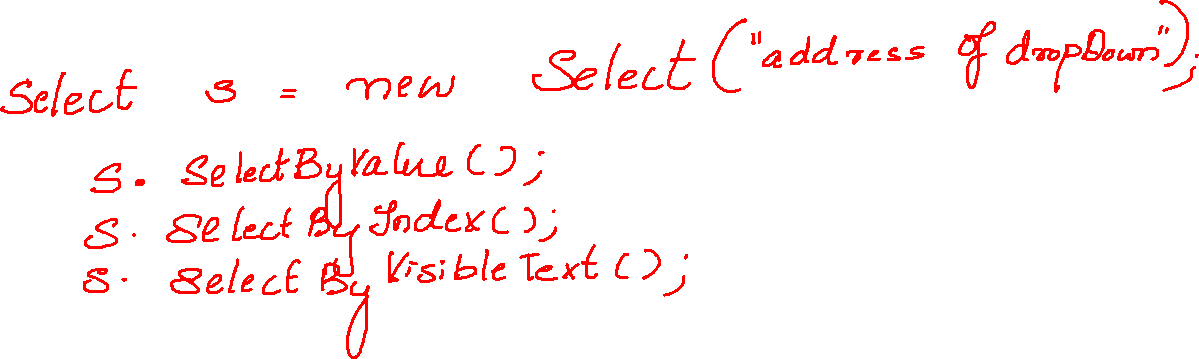 Select s = new Select("address of dropDown");
s. SelectByValue();
s. SelectByIndex();
s. SelectByVisibleText();